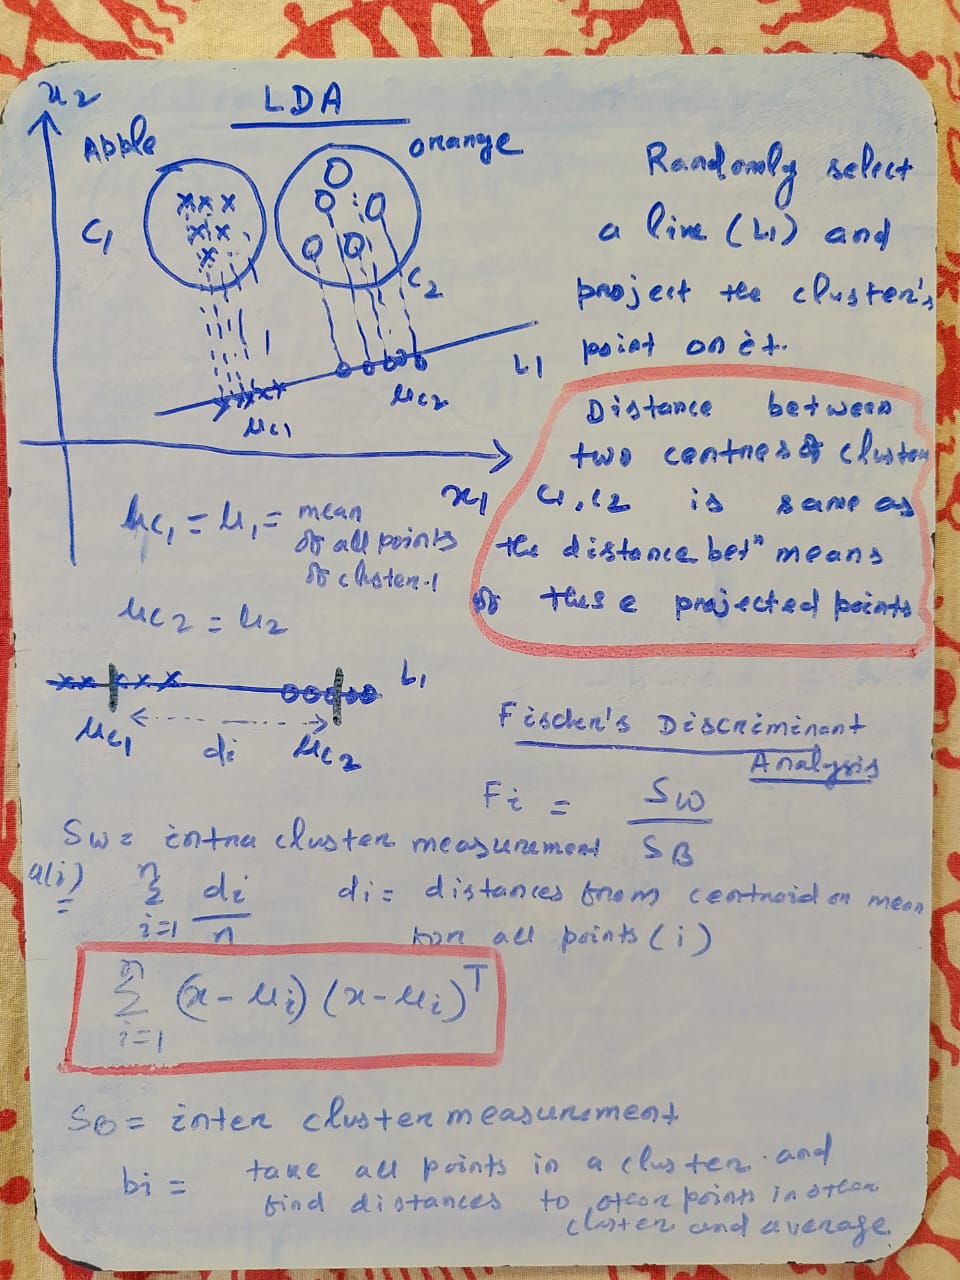 x2
LDA
Apple
orange
C1
C2
L1
μc1
μc2
x1
Randomly select
a line (L1) and
project the cluster's
point on it.
Distance between
two centres of cluster
C1, C2 is same as
the distance betn means
of these projected points
μc1 = μ1 = mean
of all points
of cluster-1
μc2 = μ2
L1
μc1
di
μc2
Fischer's Discriminant
Analysis
Fi = SW / SB
SW = intra cluster measurement
a(i) = n Σ i=1 di / n
di = distances from centroid or mean
for all points (i)
n Σ i=1 (x - μi) (x - μi)^T
SB = inter cluster measurement
bi = take all points in a cluster and
find distances to other points in other
cluster and average